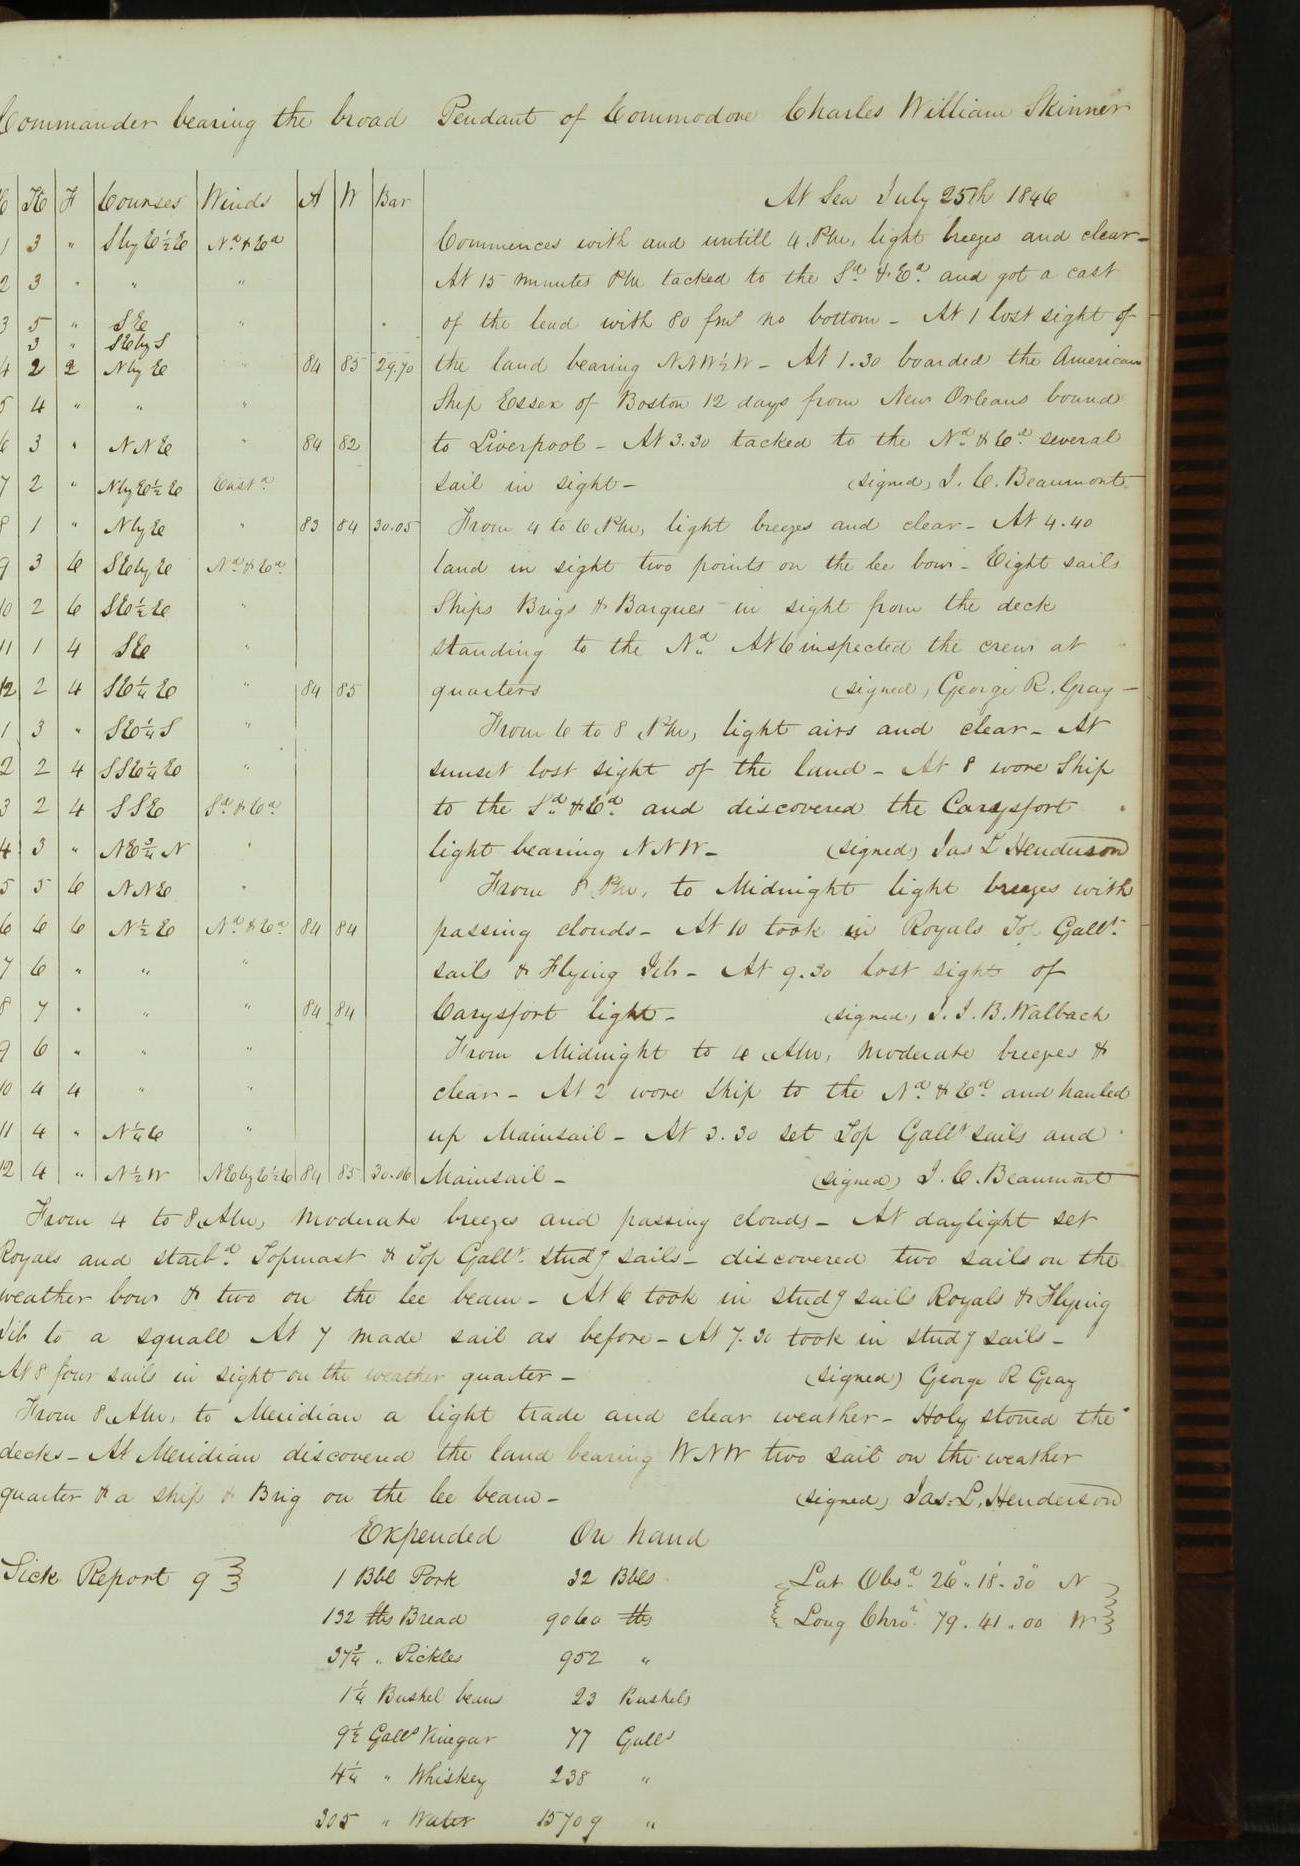 Commander bearing the broad Pendant of Commodore Charles William Skinner
K F Courses Winds A W Bar At Sea July 25th 1846
1 3 " SbyE½E Nd & Ed Commences with and untill 4 PM, light breezes and clear -
2 3 " " " At 15 minutes PM tacked to the Sd & Ed and got a cast
3 5 " SE " of the lead with 80 fms no bottom - At 1 lost sight of
3 " SEbyS
4 2 2 NbyE " 84 85 29.70 the land bearing NNW½W - At 1.30 boarded the American
5 4 " " " Ship Essex of Boston 12 days from New Orleans bound
6 3 " NNE " 84 82 to Liverpool - At 3.30 tacked to the Nd & Ed several
7 2 " NbyE½E Eastd sail in sight - (signed) I. C. Beaumont
8 1 " NbyE " 83 84 30.05 From 4 to 6 PM, light breezes and clear - At 4.40
9 3 6 SEbyE Nd & Ed land in sight two points on the lee bow - Eight sails
10 2 6 SE½E " Ships Brigs & Barques in sight from the deck
11 1 4 SE " standing to the Nd At 6 inspected the crew at
12 2 4 SE¼E " 84 85 quarters (signed) George R. Gray -
1 3 " SE¼S " From 6 to 8 PM, light airs and clear - At
2 2 4 SSE¼E " sunset lost sight of the land - At 8 wore Ship
3 2 4 SSE Sd & Ed to the Sd & Ed and discovered the Carysfort
4 3 " NE¾N " light bearing NNW - (signed) Jas L Henderson
5 5 6 NNE " From 8 PM, to Midnight light breezes with
6 6 6 N½E Nd & Ed 84 84 passing clouds - At 10 took in Royals Top Gallt
7 6 " " " sails & Flying Jib - At 9.30 lost sight of
8 7 " " " 84 84 Carysfort light - (signed) J. J. B. Walbach
9 6 " " " From Midnight to 4 AM, moderate breezes &
10 4 4 " " clear - At 2 wore Ship to the Nd & Ed and hauled
11 4 " N¼E " up Mainsail - At 3.30 set Top Gallt sails and
12 4 " N½W NEbyE½E 84 85 30.06 Mainsail - (signed) I. C. Beaumont
From 4 to 8 AM, moderate breezes and passing clouds - At daylight set
Royals and starbd Topmast & Top Gallt studg sails - discovered two sails on the
weather bow & two on the lee beam - At 6 took in studg sails Royals & Flying
Jib to a squall At 7 made sail as before - At 7.30 took in studg sails -
At 8 four sails in sight on the weather quarter - (signed) George R Gray
From 8 AM, to Meridian a light trade and clear weather - Holy stoned the
decks - At Meridian discovered the land bearing WNW two sail on the weather
quarter & a ship & Brig on the lee beam - (signed) Jas. L. Henderson
Expended On hand
Sick Report 9 1 Bbl Pork 32 Bbls Lat Obsd 26°.18'.30" N
132 lbs Bread 9060 lbs Long Chro. 79.41.00 W
37¾ " Pickles 952 "
1¼ Bushel beans 23 Bushels
9½ Galls Vinegar 77 Galls
4¼ " Whiskey 238 "
305 " Water 15709 "